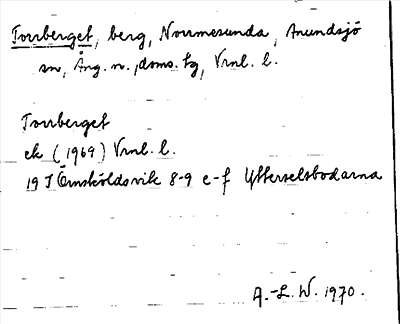 Torrberget, berg, Norrmesunda, Anundsjö
sn, Ång. n., doms. tg, Vrnl. l.
Torrberget
ek (1969) Vrnl. l.
19 J Örnsköldsvik 8-9 e-f Ytterselsbodarna
A.-L. W. 1970.